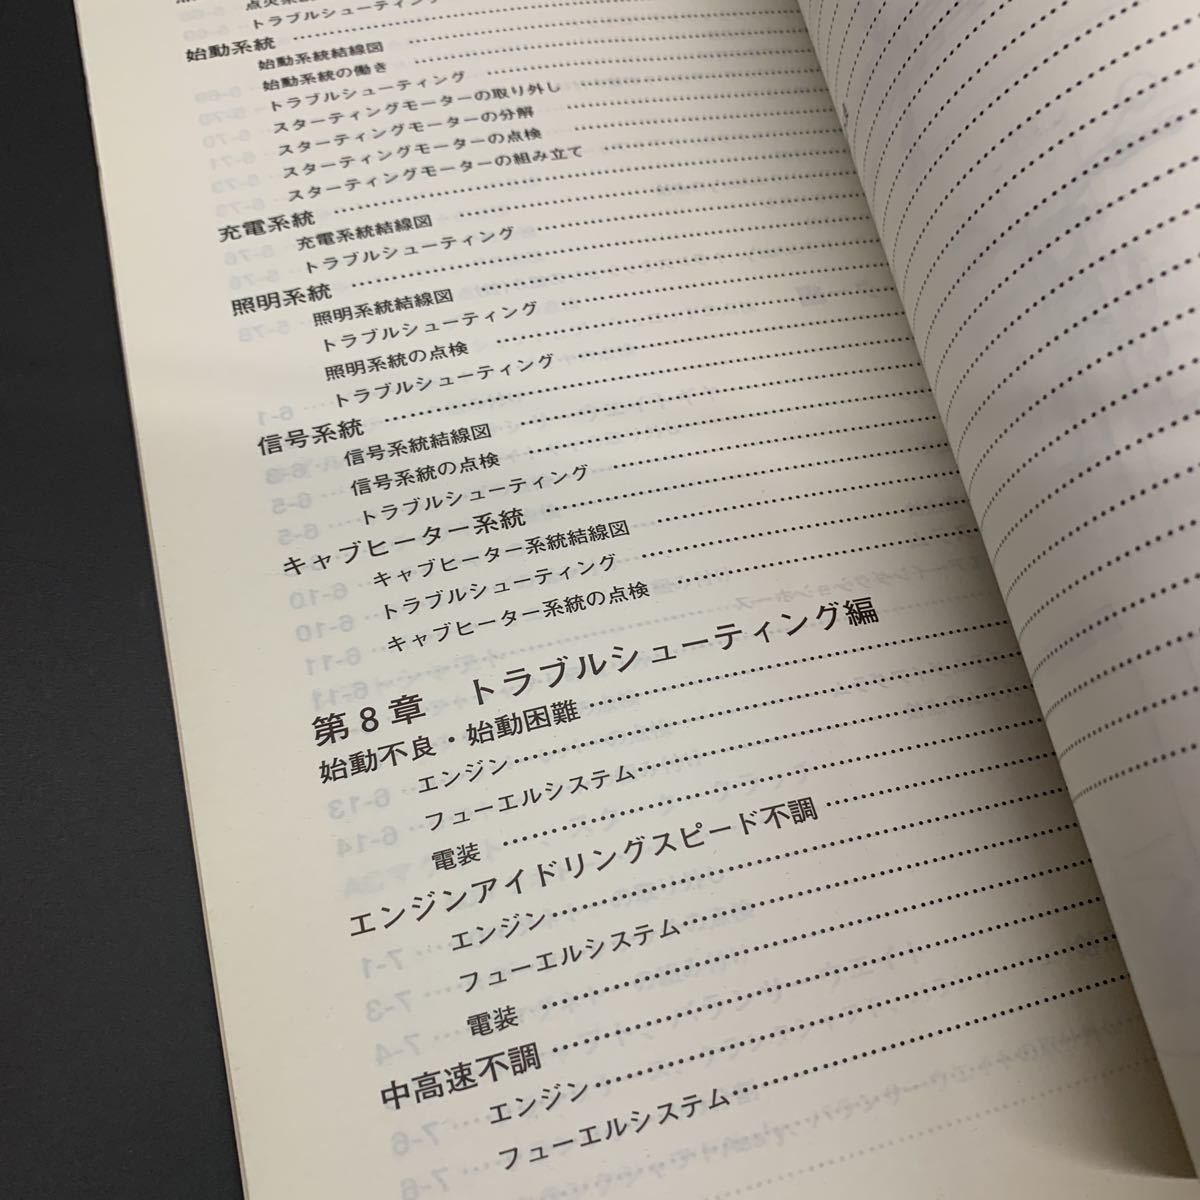 トラブルシューティング
始動系統
始動系統結線図
始動系統の働き
トラブルシューティング
スターティングモーターの取り外し
スターティングモーターの分解
スターティングモーターの点検
スターティングモーターの組み立て
充電系統
充電系統結線図
トラブルシューティング
照明系統
照明系統結線図
トラブルシューティング
照明系統の点検
トラブルシューティング
信号系統
信号系統結線図
信号系統の点検
トラブルシューティング
キャブヒーター系統
キャブヒーター系統結線図
トラブルシューティング
キャブヒーター系統の点検
第8章 トラブルシューティング編
始動不良・始動困難
エンジン
フューエルシステム
電装
エンジンアイドリングスピード不調
エンジン
フューエルシステム
電装
中高速不調
エンジン
フューエルシステム